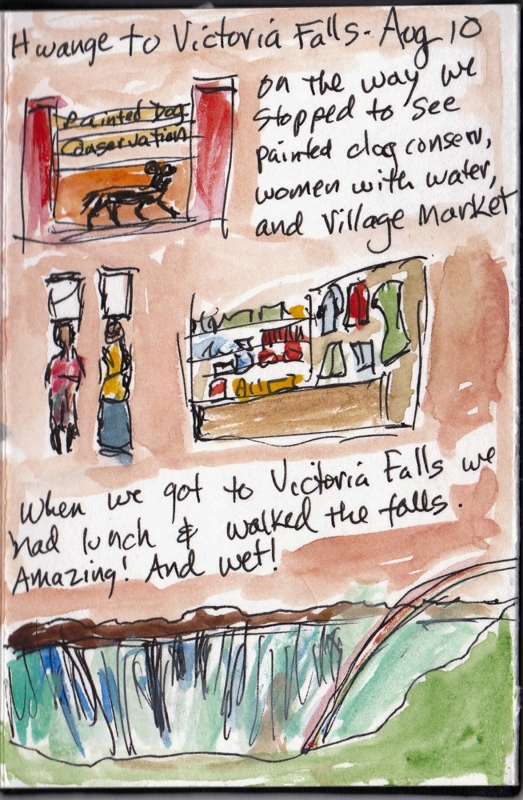 Hwange to Victoria Falls - Aug 10
Painted Dog
Conservation
on the way we
stopped to see
painted dog conserv,
women with water,
and Village Market
When we got to Victoria Falls we
had lunch & walked the falls.
Amazing! And wet!